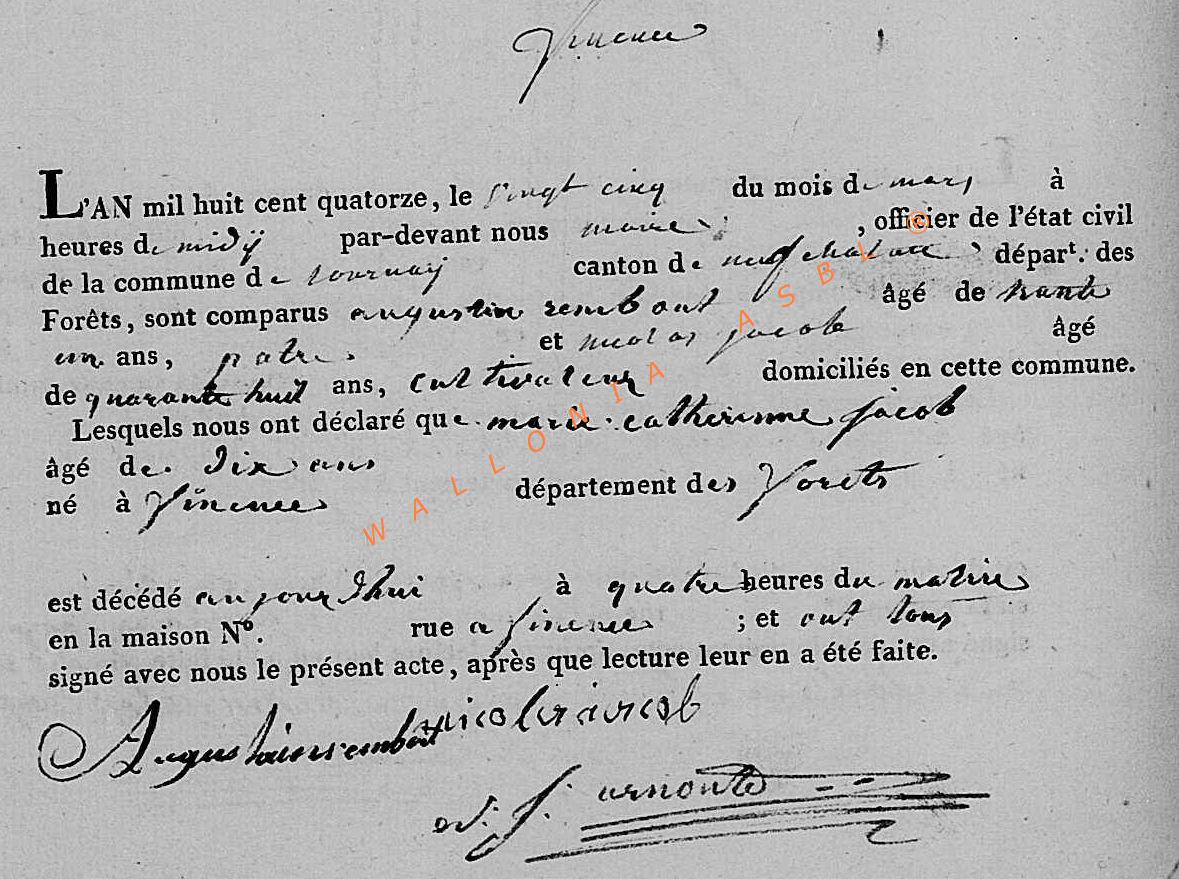 Jinenee
L'AN mil huit cent quatorze, le vingt cinq du mois de mars à
heures de midÿ par-devant nous maire , officier de l'état civil
de la commune de tournaÿ canton de neufchateau départ. des
Forêts, sont comparus augustin rembout âgé de trante
un ans, patre et nicolas jacob âgé
de quarante huit ans, cultivateur domiciliés en cette commune.
Lesquels nous ont déclaré que marie catherinne jacob
âgé de Dix ans
né à Jinenee département des Forets
est décédé aujourdhui à quatre heures du matin
en la maison N°. rue a Jinenee ; et ont tous
signé avec nous le présent acte, après que lecture leur en a été faite.
nicolas jacob
arnould
WALLONIA ASBL ©